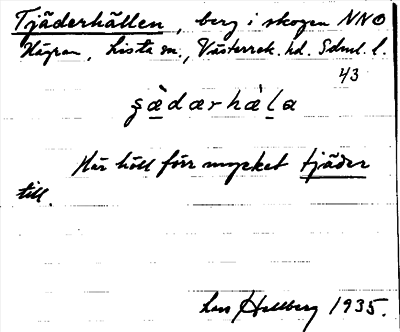 Tjäderhällen, berg i skogen NNO
Hägran, Lista sn., Västerrek. hd. Sdml. l.
43
ʂæ̀dærhæ̀l̲a
Här höll förr mycket tjäder
till.
Lars Hellberg 1935.